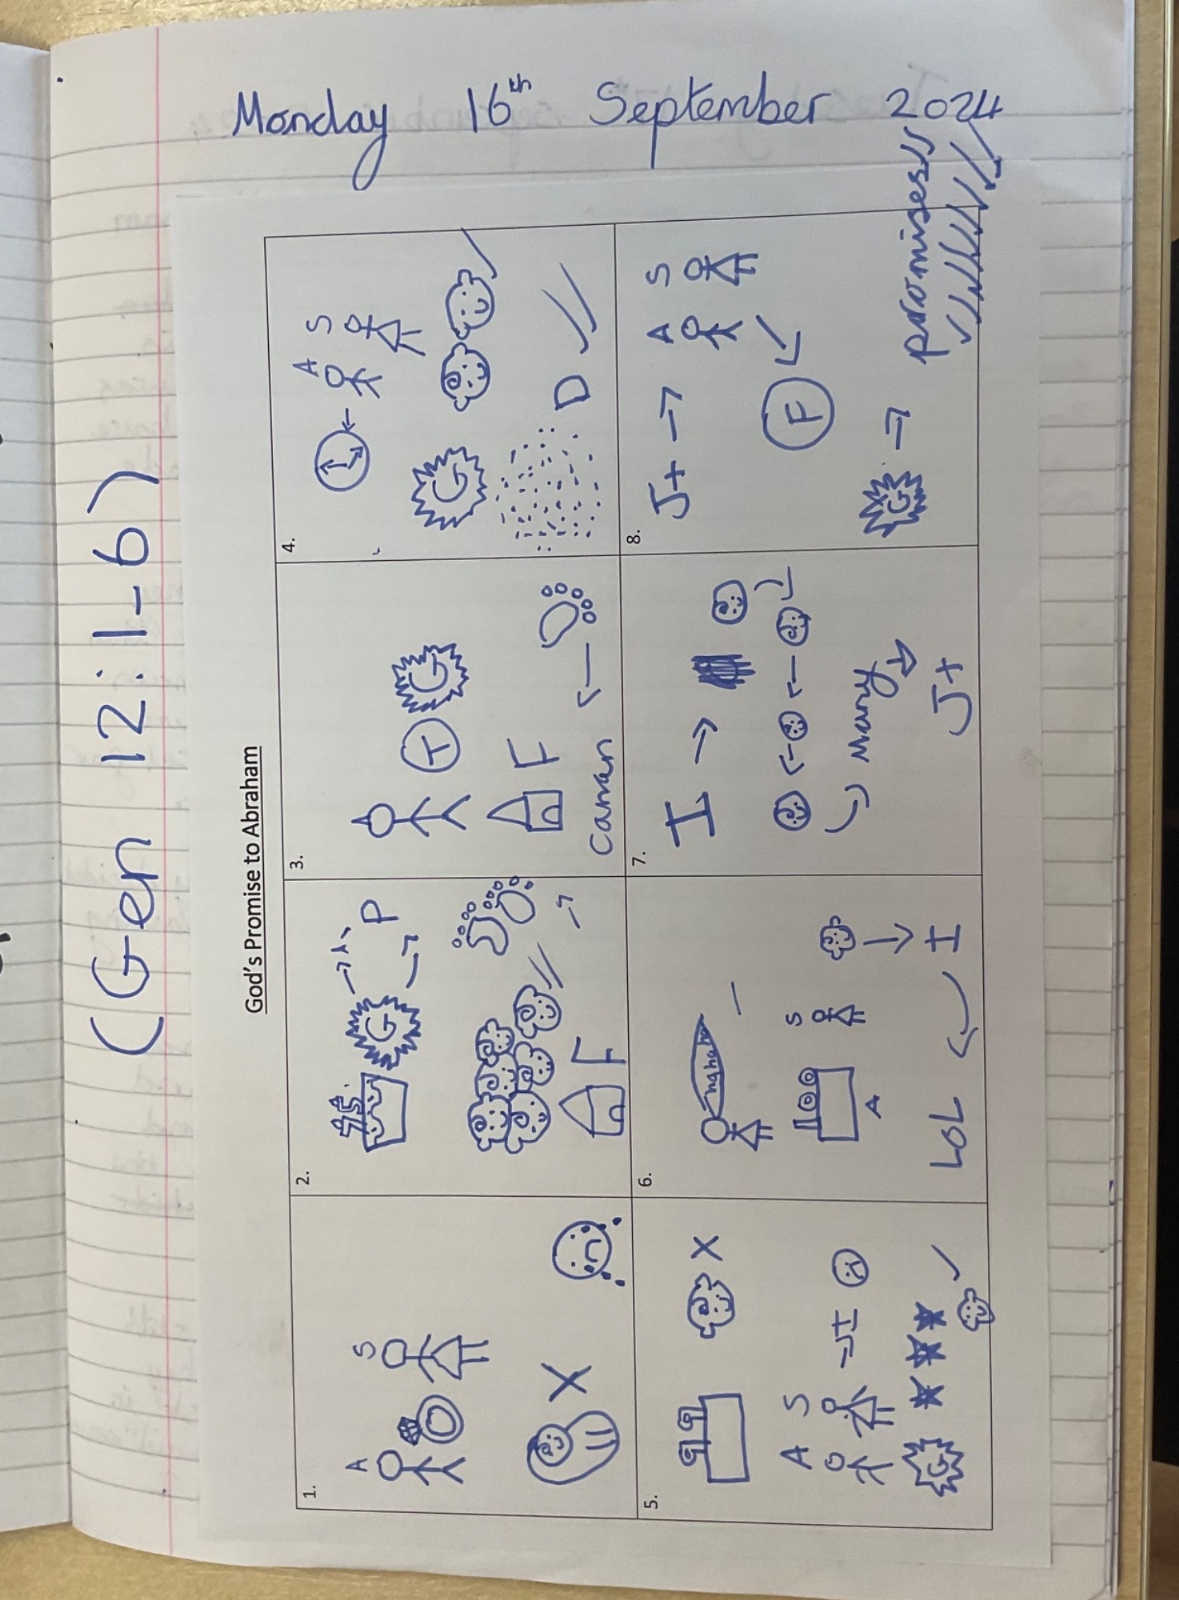 Monday 16th September 2024
(Gen 12:1-6)
God's Promise to Abraham
1.
A S
X
2.
75 G A
P
F
3.
T G
F
Canan
4.
A S
G
D
5.
X
A S
I
G
6.
hahaha
S
A
I
LOL
7.
I
Mary
J+
8.
J+ A S
F
G promises